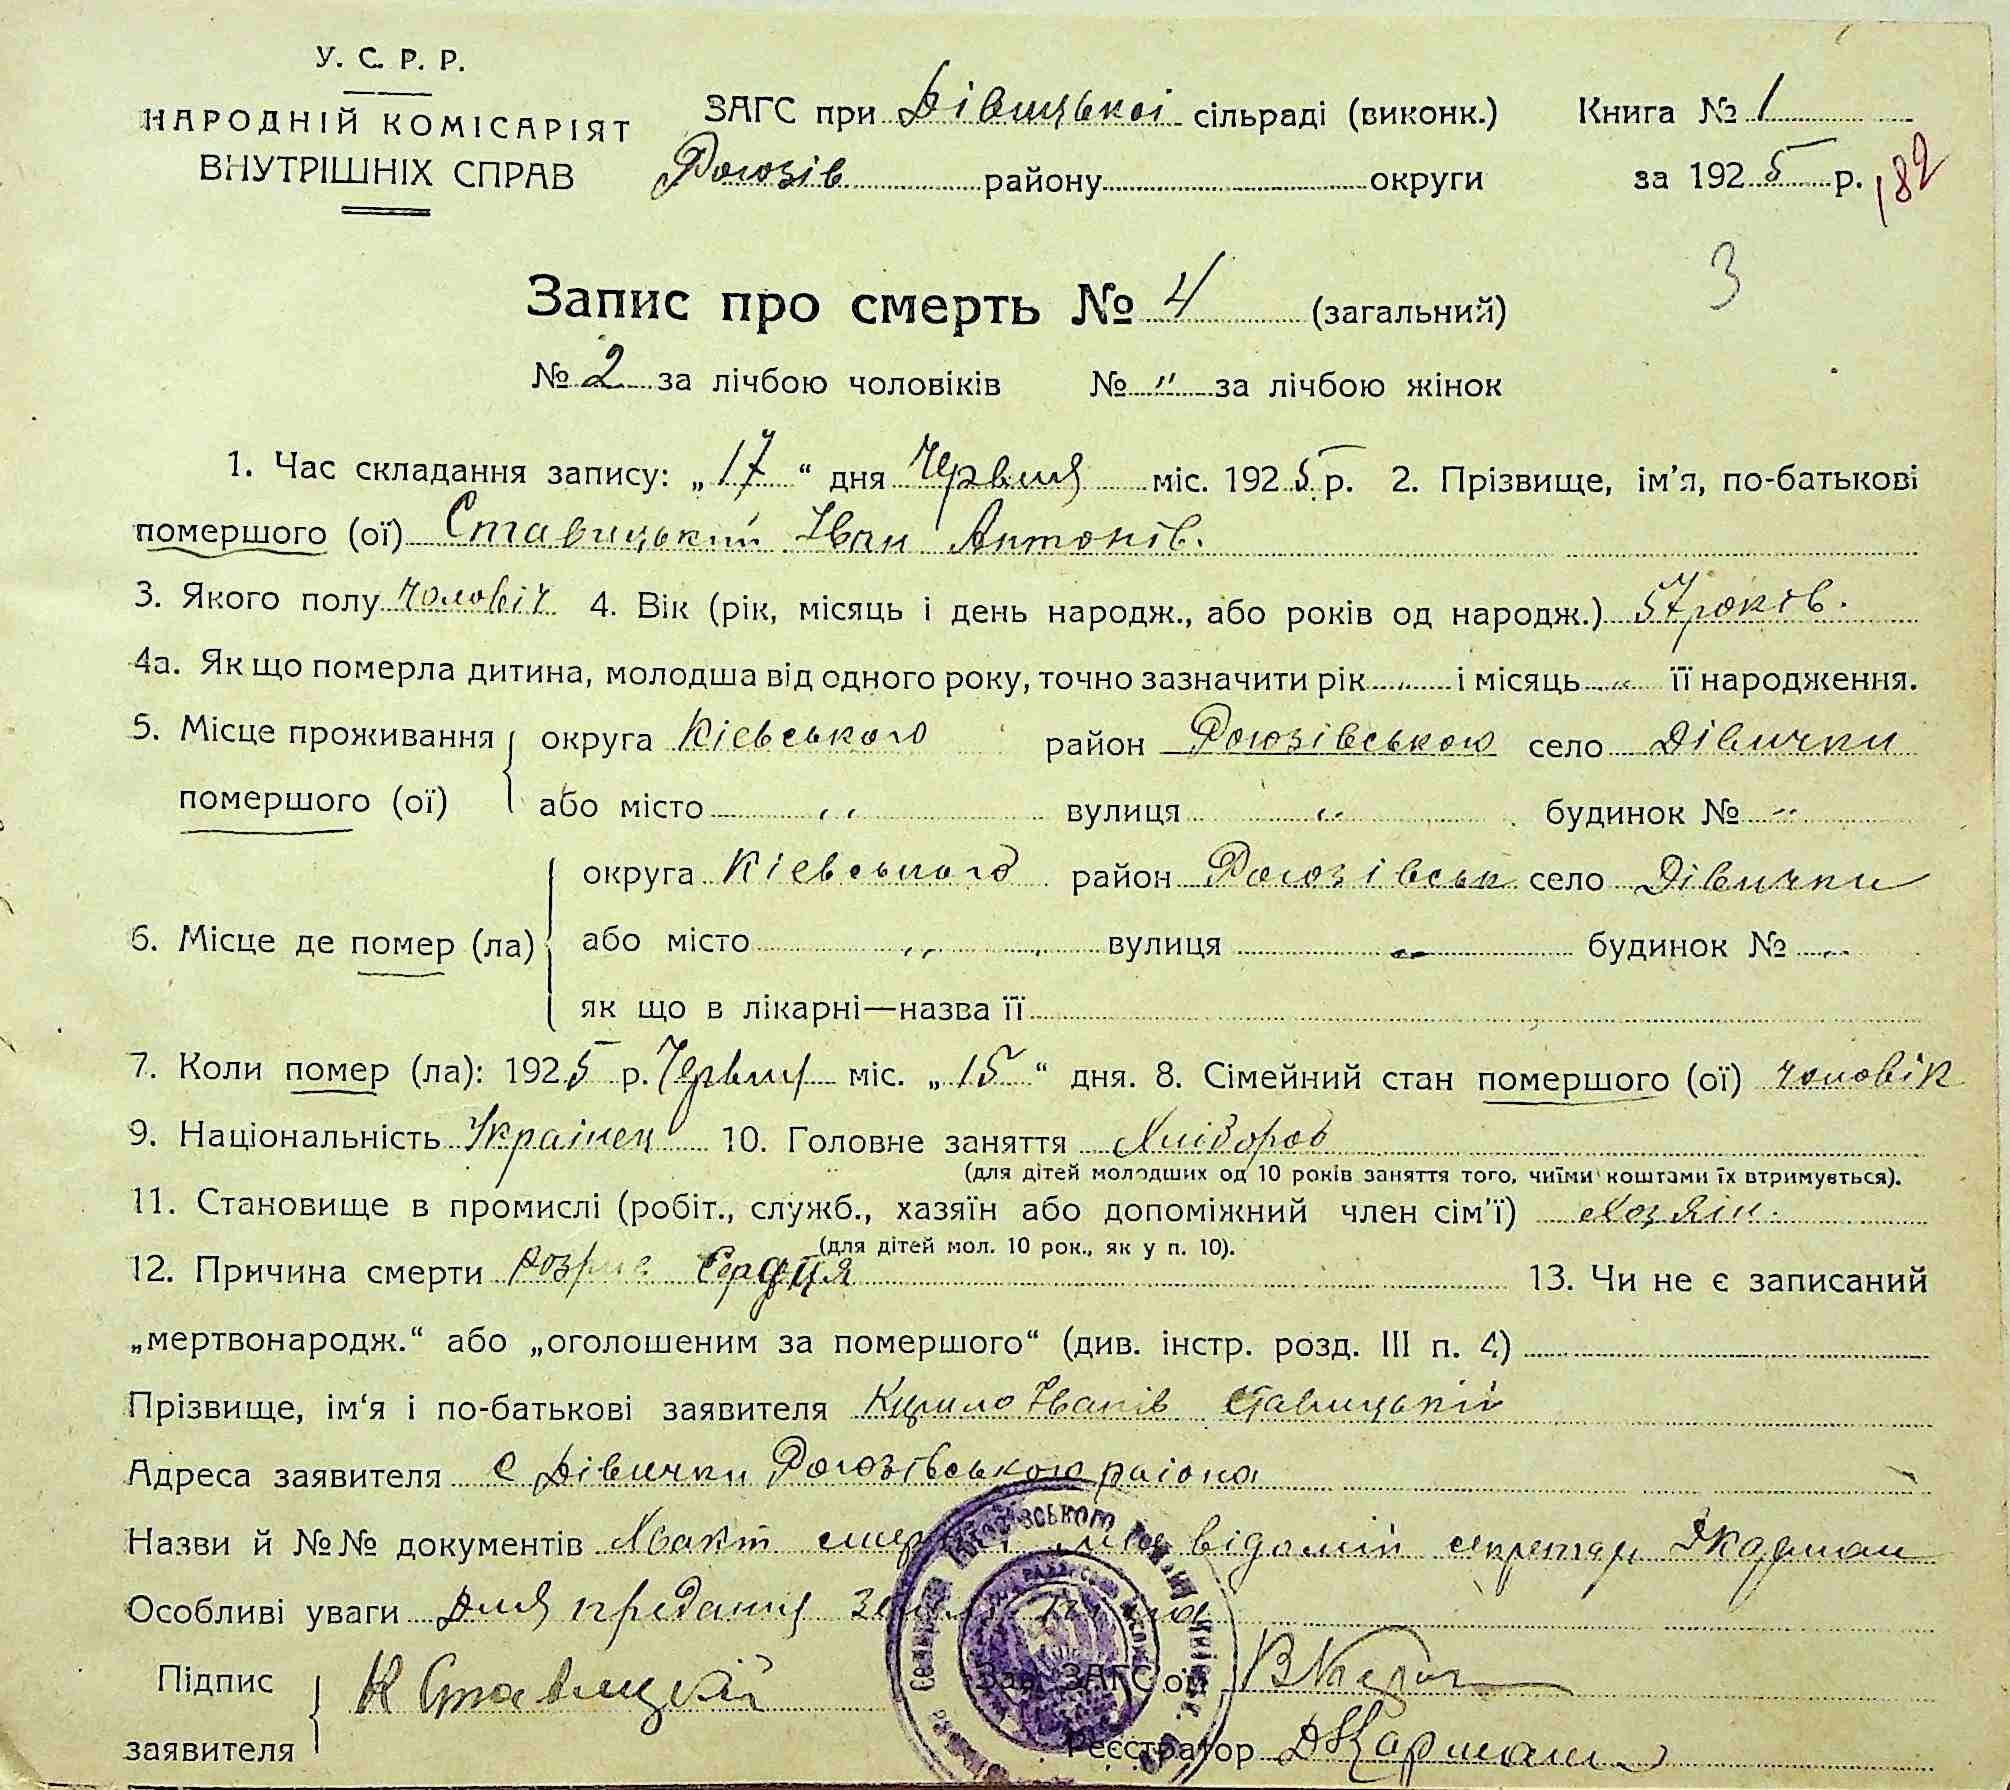 У. С. Р. Р.
НАРОДНІЙ КОМІСАРІЯТ
ВНУТРІШНІХ СПРАВ
ЗАГС при Дівицької сільраді (виконк.) Книга № 1
Рогозів району округи за 1925 р. 182
3
Запис про смерть № 4 (загальний)
№ 2 за лічбою чоловіків № " за лічбою жінок
1. Час складання запису: „17“ дня Червня міс. 1925 р. 2. Прізвище, ім'я, по-батькові
помершого (ої) Ставицький Іван Антонів.
3. Якого полу чоловіч 4. Вік (рік, місяць і день народж., або років од народж.) 57 років.
4а. Як що померла дитина, молодша від одного року, точно зазначити рік " і місяць " її народження.
5. Місце проживання округа Кіевського район Рогозівського село Дівички
помершого (ої) або місто " вулиця " будинок № "
округа Кіевського район Рогозівськ село Дівички
6. Місце де помер (ла) або місто " вулиця " будинок № "
як що в лікарні—назва її
7. Коли помер (ла): 1925 р. Червня міс. „15“ дня. 8. Сімейний стан помершого (ої) чоловік
9. Національність Українец 10. Головне заняття Хлібороб
(для дітей молодших од 10 років заняття того, чиїми коштами їх втримується).
11. Становище в промислі (робіт., служб., хазяїн або допоміжний член сім'ї) Хозяін.
(для дітей мол. 10 рок., як у п. 10).
12. Причина смерти розрив Сердця 13. Чи не є записаний
„мертвонародж.“ або „оголошеним за помершого“ (див. інстр. розд. III п. 4)
Прізвище, ім'я і по-батькові заявителя Кирило Іванів Ставицькій
Адреса заявителя с Дівички Рогозівського раіона
Назви й №№ документів Хвакт смерти мені відомий секретарь Д Карман
Особливі уваги Для предания земли
Підпис К Ставицкій Зав. ЗАГС'ом
заявителя Реєстратор Д Карман